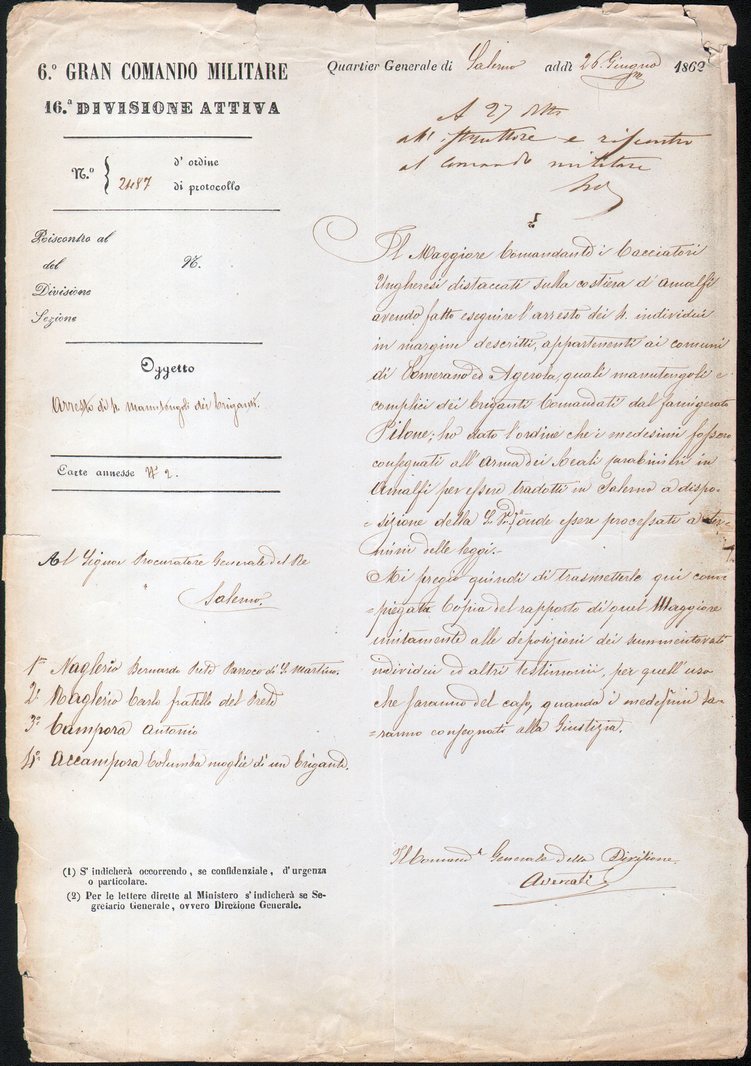 6.º GRAN COMANDO MILITARE
16.ª DIVISIONE ATTIVA
N.º 2487 d' ordine
di protocollo
Riscontro al
del N.
Divisione
Sezione
Oggetto
Arresto di 4 manutengoli dei briganti.
Carte annesse N° 2.
Al Signor Procuratore Generale del Re
Salerno.
1º Naglerio Bernardo Prete Parroco di S. Martino.
2º Naglerio Carlo fratello del Prete
3º Campora Antonio
4º Accampora Columba moglie di un brigante.
(1) S' indicherà occorrendo, se confidenziale, d' urgenza
o particolare.
(2) Per le lettere dirette al Ministero s' indicherà se Se-
gretario Generale, ovvero Direzione Generale.
Quartier Generale di Salerno addì 26 Giugno 1862
A 27
e riscontro
al Comando militare
Il Maggiore Comandante i Cacciatori
Ungheresi distaccati sulla costiera d'Amalfi
avendo fatto eseguire l'arresto dei 4. individui
in margine descritti, appartenenti ai comuni
di Tomerano ed Agerola, quali manutengoli e
complici dei briganti Comandati dal famigerato
Pilone; ho dato l'ordine che i medesimi fossero
consegnati all'arma dei Reali Carabinieri in
Amalfi per essere tradotti in Salerno a dispo-
=sizione della onde essere processati a ter-
mini delle leggi.-
Mi pregio quindi di trasmetterle qui com-
=piegata Copia del rapporto di quel Maggiore
unitamente alle deposizioni dei summentovati
individui ed altri testimonii, per quell'uso
che faranno del caso, quando i medesimi sa-
=ranno consegnati alla Giustizia.
Il Comand.e Generale della Divisione
Avenati